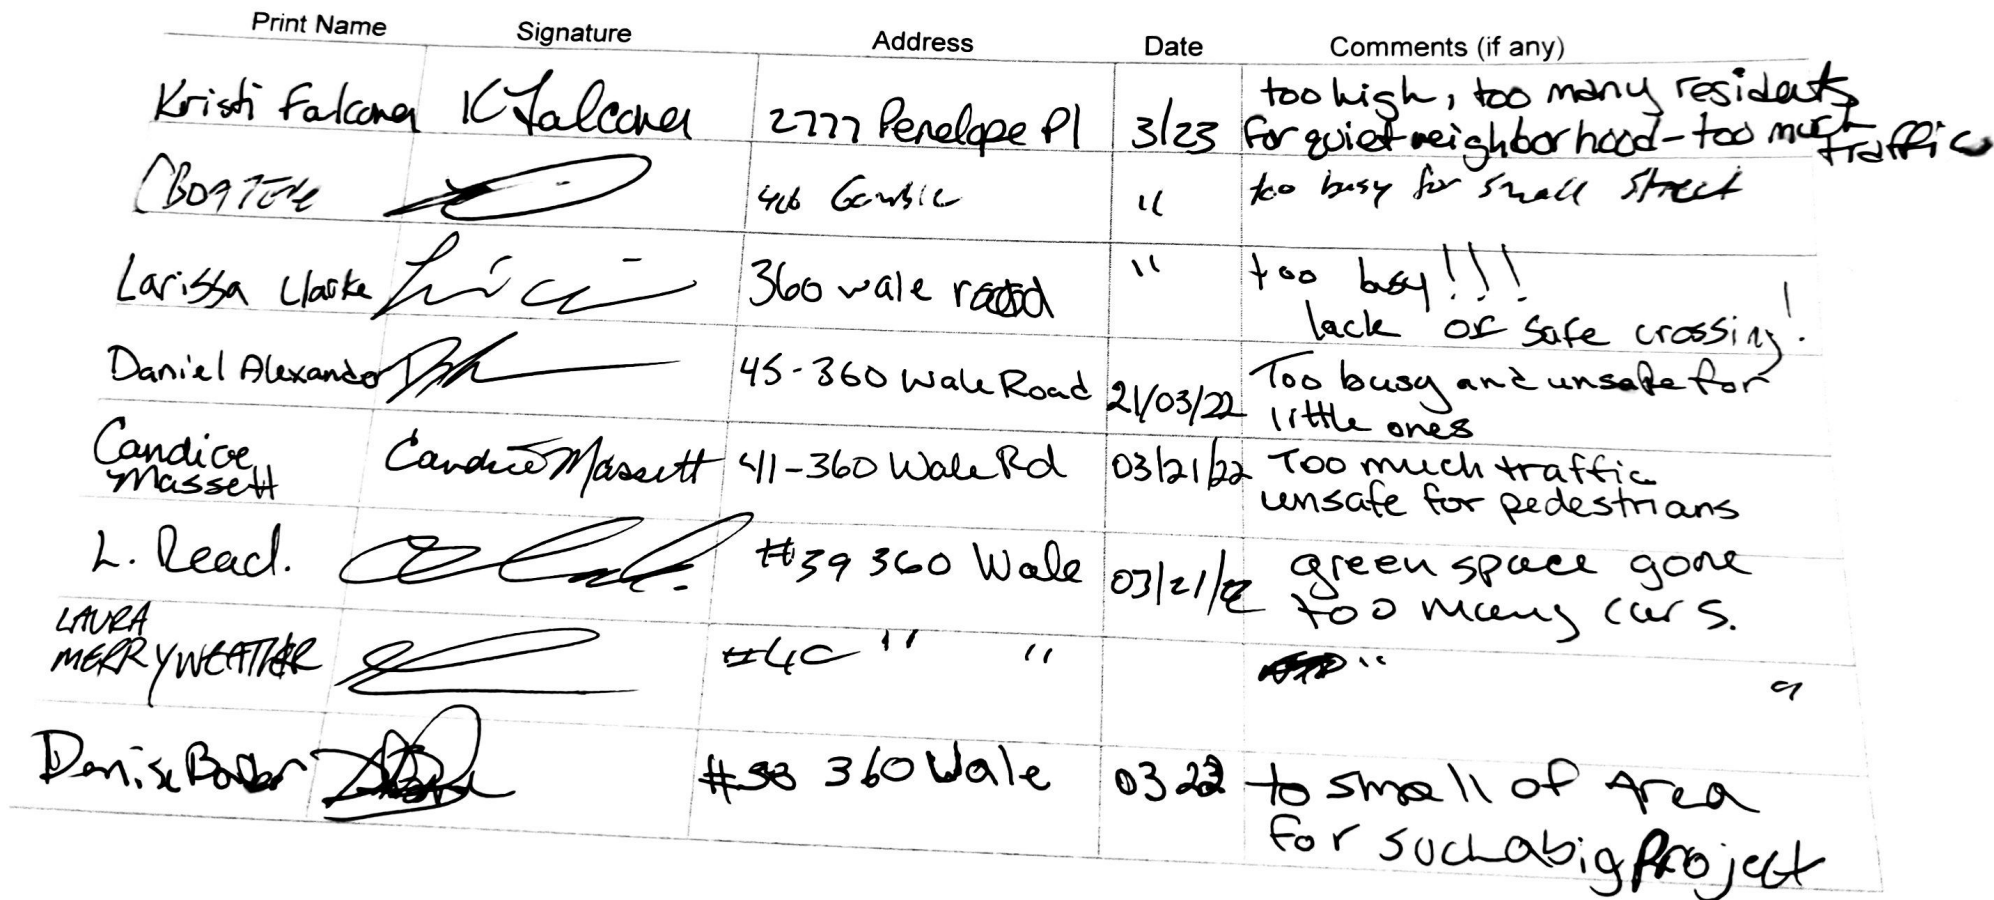 Print Name Signature Address Date Comments (if any)
Kristi Falconer K Falconer 2777 Penelope Pl 3/23 too high, too many residents
for quiet neighborhood - too much
traffic
" too busy for small street
Larissa Clarke 360 wale road " too busy!!!
lack of safe crossing!
Daniel Alexander 45-360 Wale Road 21/03/22 Too busy and unsafe for
little ones
Candice
Massett Candice Massett 41-360 Wale Rd 03/21/22 Too much traffic
unsafe for pedestrians
L. Read. #39 360 Wale 03/21/22 green space gone
too many cars.
LAURA
MERRYWEATHER #40 " " " "
Denise #38 360 Wale 03 to small of Area
for such a big Project